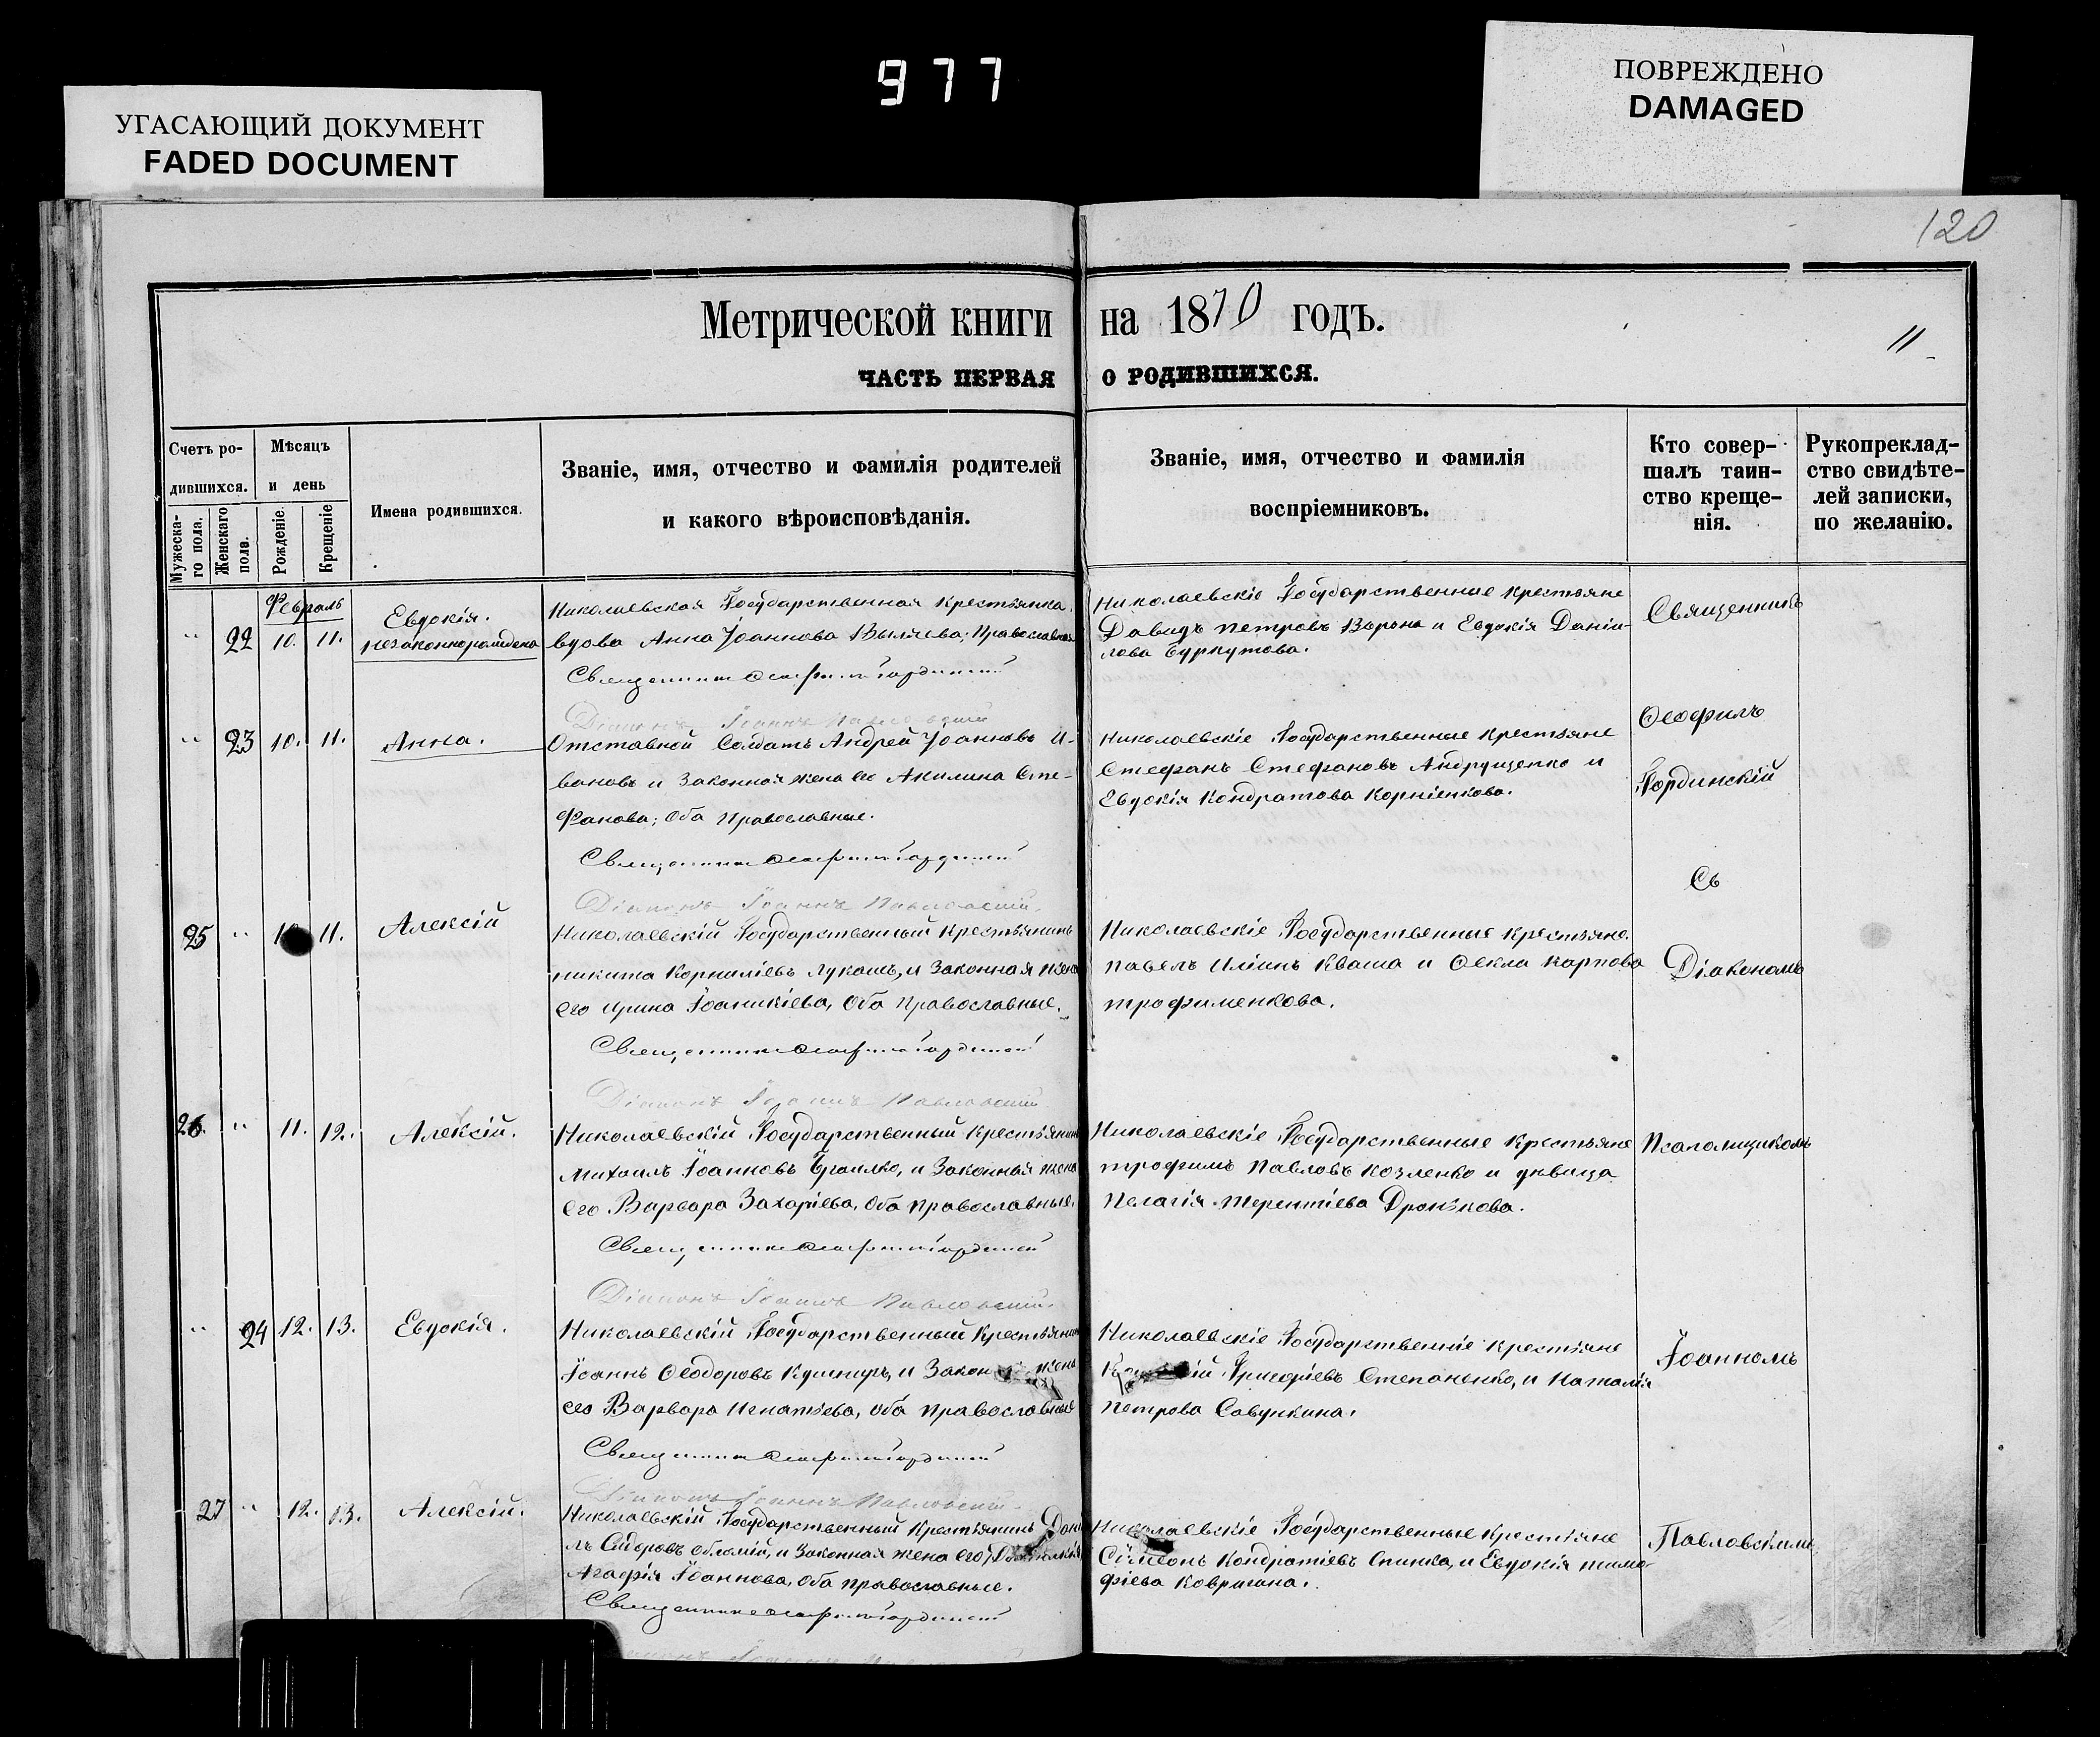 977
УГАСАЮЩИЙ ДОКУМЕНТ
FADED DOCUMENT
ПОВРЕЖДЕНО
DAMAGED
120
Метрической книги на 1870 годъ.
11
ЧАСТЬ ПЕРВАЯ О РОДИВШИХСЯ.
Счетъ ро-
дившихся.
Мужеска-
го пола.
Женскаго
пола.
Мѣсяцъ
и день
Рожденіе
Крещеніе
Имена родившихся.
Званіе, имя, отчество и фамилія родителей
и какого вѣроисповѣданія.
Званіе, имя, отчество и фамилія
воспріемниковъ.
Кто совер-
шалъ таин-
ство креще-
нія.
Рукоприклад-
ство свидѣте-
лей записки,
по желанію.
Февраль
22 10. 11.
Евдокія.
незаконнорождена
Николаевская Государственная Крестьянка
вдова Анна Іоаннова Православная
Священникъ Ѳеофилъ Гординскій
Діаконъ Іоаннъ Павловскій
Николаевскіе Государственные крестьяне
Давидъ Петровъ и Евдокія Даніи-
лова Буркутова.
23 10. 11.
Анна.
Отставной Солдатъ Андрей Іоанновъ И-
вановъ и Законная жена его Акилина Сте-
фанова; Оба Православные.
Священникъ Ѳеофилъ Гординскій
Діаконъ Іоаннъ Павловскій.
Николаевскіе Государственные Крестьяне
Стефанъ Стефановъ Андрущенко и
Евдокія Кондратова Корніенкова.
25 11.
Алексій
Николаевскій Государственный Крестьянинъ
Никита Корниліевъ Лукашъ, и Законная жена
его Ирина Іоаникіева, Оба Православные.
Священникъ Ѳеофилъ Гординскій
Діаконъ Іоаннъ Павловскій
Николаевскіе Государственные крестьяне.
Павелъ Иліинъ Кваша и Ѳекла Карпова
Трофименкова.
26. 11. 12.
Алексій.
Николаевскій Государственный Крестьянинъ
Михаилъ Іоанновъ и Законная жена
его Варвара Захаріева, Оба Православные.
Священникъ Ѳеофилъ Гординскій
Діаконъ Іоаннъ Павловскій.
Николаевскіе Государственные Крестьяне
Трофимъ Павловъ Козленко и дѣвица
Пелагія Терентіева
24 12. 13.
Евдокія.
Николаевскій Государственный Крестьянинъ
Іоаннъ Ѳеодоровъ Кушниръ, и Закон жена
его Варвара Игнатьева, оба Православные
Священникъ Ѳеофилъ Гординскій
Діаконъ Іоаннъ Павловскій.
Николаевскіе Государственніе Крестьяне
Григоріевъ Степаненко, и Наталія
Петрова Савункина.
27 12. 13.
Алексій.
Николаевскій Государственный Крестьянинъ
Сидоровъ и Законная жена его
Агафія Іоаннова, Оба Православные.
Священникъ Ѳеофилъ Гординскій
Николаевскіе Государственные Крестьяне
Сімеонъ Кондратіевъ Спинка, и Евдокія Тимо-
фіева Ковригина.
Священникъ
Ѳеофилъ
Гординскій
Съ
Діакономъ
Псаломщикомъ
Іоанномъ
Павловскимъ